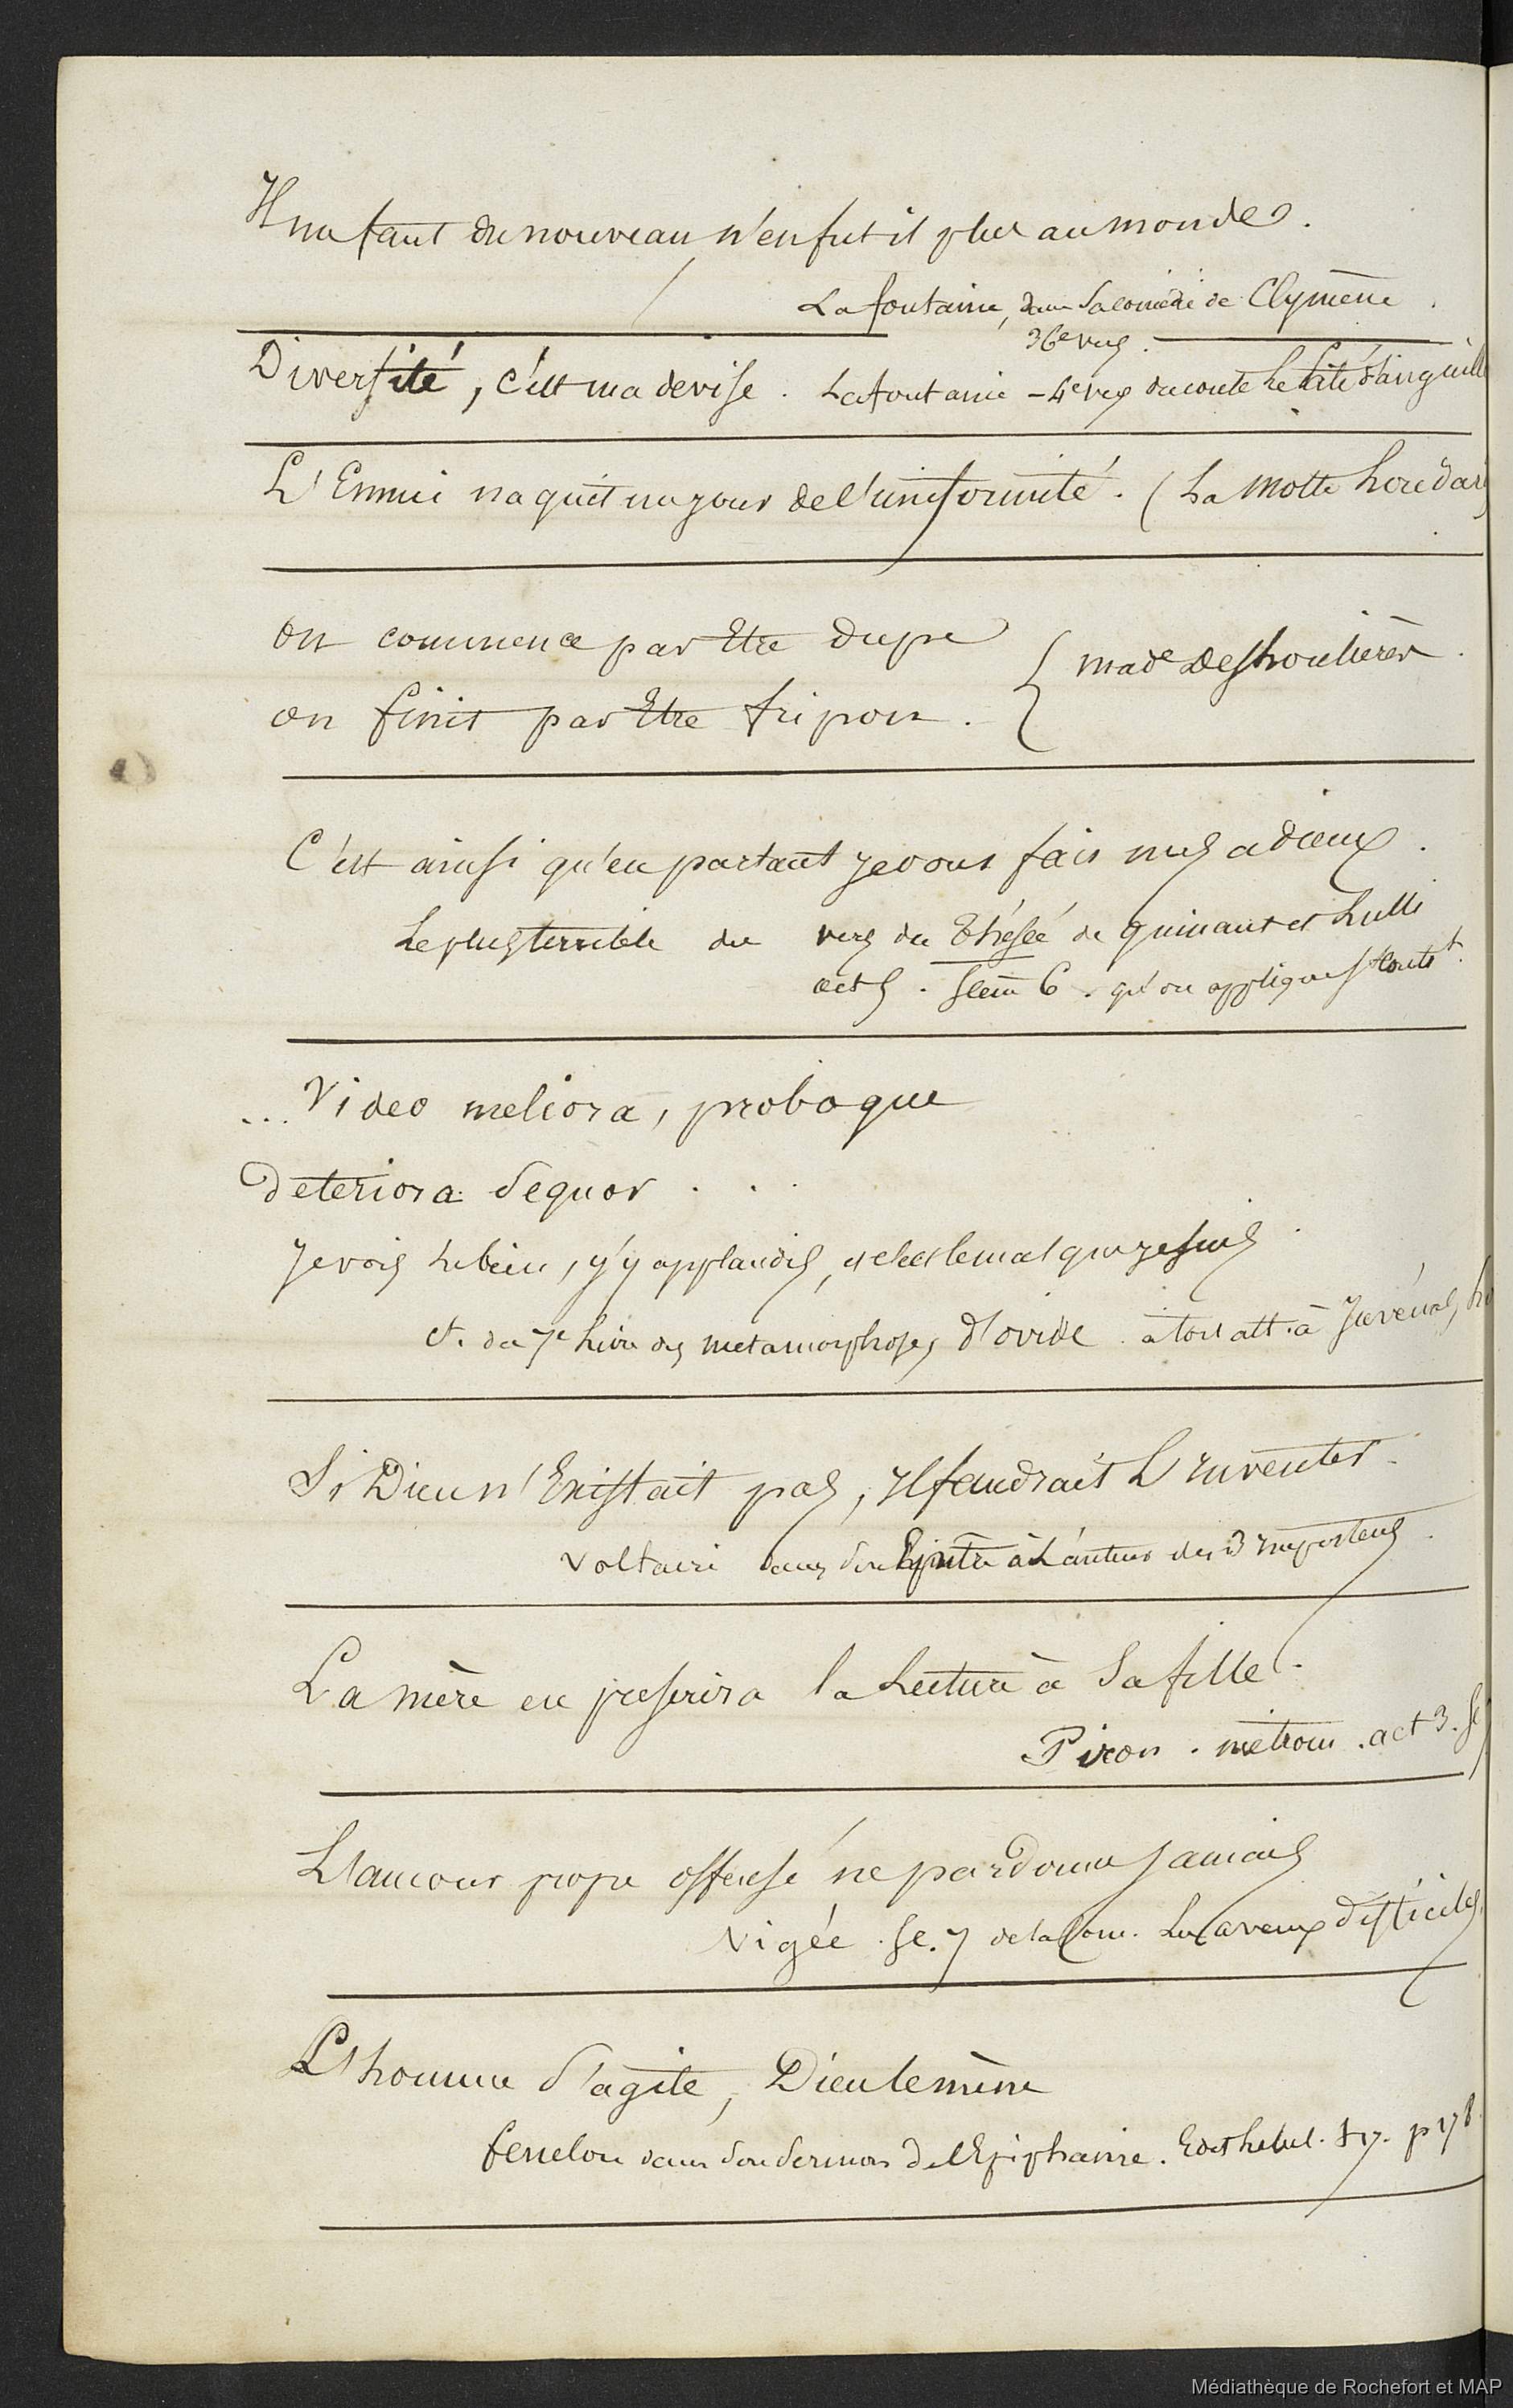 Il me faut du nouveau n'en fut il plus au monde.
La fontaine, dans sa comédie de Clymène.
36e vers.
Diversité, c'est ma devise. La fontaine - 4e vers du conte Le Pâté d'anguille
L'Ennui naquit un jour de l'uniformité. (La Motte houdar
on commence par Etre dupe
on finit par Etre fripon.
made Deshoulières.
C'est ainsi qu'en partant je vous fais mes adieux.
Le plus terrible des vers du Thésée de quinaut et Lulli
act 5. scene 6. qu'on applique
... Video meliora, proboque
deteriora sequor . . .
Je vois le bien, j'y applaudis, et c'est le mal que je suis.
du 7e livre des metamorphoses d'ovide. à tort att. à Juvénal,
Si Dieu n'Existait pas, Il faudrait L'Inventer.
Voltaire dans son Epitre à L'auteur des 3 Imposteurs.
La mère en prescrira la Lecture à sa fille.
Piron. métrom. act 3. sc
L'amour propre offensé ne pardonne jamais
Vigée. sc. 7 de la Com. Les aveux difficiles,
L'homme s'agite, Dieu le mène
fenelon dans son sermon de l'Epiphanie. Edit Lebel. t 17. p 178.
Médiathèque de Rochefort et MAP